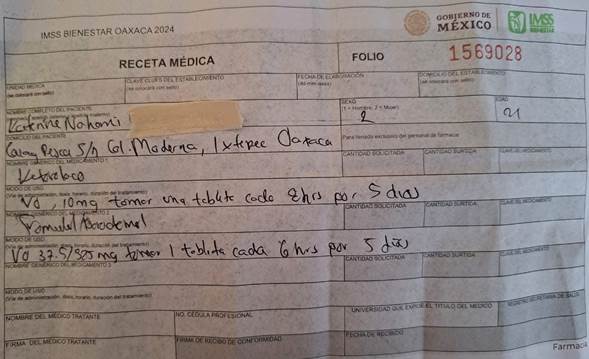 IMSS BIENESTAR OAXACA 2024
GOBIERNO DE
MÉXICO
IMSS
BIENESTAR
RECETA MÉDICA
FOLIO
1569028
UNIDAD MÉDICA
(se colocará con sello)
CLAVE CLUES DEL ESTABLECIMIENTO
(se colocará con sello)
FECHA DE ELABORACIÓN
DOMICILIO DEL ESTABLECIMIENTO
(se colocará con sello)
NOMBRE COMPLETO DEL PACIENTE
Nahomi
SEXO
(1 = Hombre, 2 = Mujer)
2
EDAD
21
DOMICILIO DEL PACIENTE
S/n Col. Moderna, Ixtepec Oaxaca
Para llenado exclusivo del personal de farmacia
NOMBRE GENÉRICO DEL MEDICAMENTO 1
CANTIDAD SOLICITADA
CANTIDAD SURTIDA
CLAVE DEL MEDICAMENTO
MODO DE USO
(Vía de administración, dosis, horario, duración del tratamiento)
VO, 10mg tomar una tableta cada 8hrs por 5 dias
NOMBRE GENÉRICO DEL MEDICAMENTO 2
CANTIDAD SOLICITADA
CANTIDAD SURTIDA
CLAVE DEL MEDICAMENTO
MODO DE USO
(Vía de administración, dosis, horario, duración del tratamiento)
VO 37.5/325 mg tomar 1 tableta cada 6 hrs por 5 días
NOMBRE GENÉRICO DEL MEDICAMENTO 3
CANTIDAD SOLICITADA
CANTIDAD SURTIDA
CLAVE DEL MEDICAMENTO
MODO DE USO
(Vía de administración, dosis, horario, duración del tratamiento)
NOMBRE DEL MÉDICO TRATANTE
NO. CÉDULA PROFESIONAL
UNIVERSIDAD QUE EXPIDE EL TÍTULO DEL MÉDICO
REGISTRO SECRETARÍA DE SALUD
FIRMA DEL MÉDICO TRATANTE
FIRMA DE RECIBO DE CONFORMIDAD
FECHA DE RECIBIDO
Farmacia